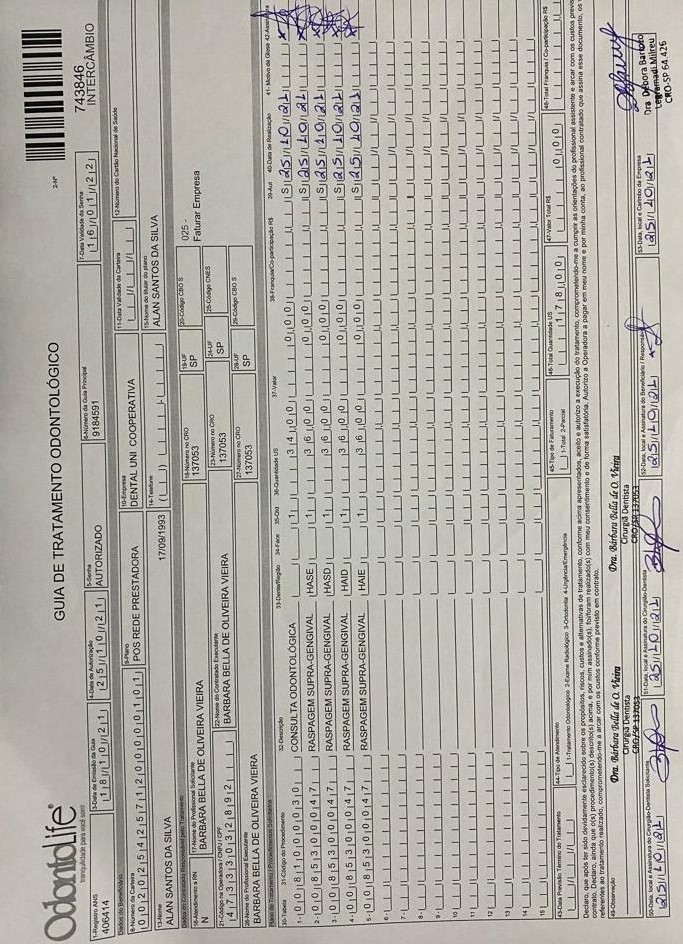 Odontolife
tranquilidade para você sorrir
GUIA DE TRATAMENTO ODONTOLÓGICO
2-Nº
743846
INTERCÂMBIO
1-Registro ANS
406414
3-Data de Emissão da Guia
18/10/21
4-Data de Autorização
25/10/21
5-Senha
AUTORIZADO
6-Número da Guia Principal
9184591
7-Data Validade da Senha
16/01/22
Dados do Beneficiário
8-Número da Carteira
00202542571200000101
9-Plano
POS REDE PRESTADORA
10-Empresa
DENTAL UNI COOPERATIVA
11-Data Validade da Carteira
12-Número do Cartão Nacional de Saúde
13-Nome
ALAN SANTOS DA SILVA
17/09/1993
14-Telefone
15-Nome do titular do plano
ALAN SANTOS DA SILVA
Dados do Contratado Responsável pelo Tratamento
16-Atendimento a RN
N
17-Nome do Profissional Solicitante
BARBARA BELLA DE OLIVEIRA VIEIRA
18-Número no CRO
137053
19-UF
SP
20-Código CBO S
025 -
Faturar Empresa
21-Código na Operadora / CNPJ / CPF
47333032892
22-Nome do Contratado Executante
BARBARA BELLA DE OLIVEIRA VIEIRA
23-Número no CRO
137053
24-UF
SP
25-Código CNES
26-Nome do Profissional Executante
BARBARA BELLA DE OLIVEIRA VIEIRA
27-Número no CRO
137053
28-UF
SP
29-Código CBO S
Plano de Tratamento / Procedimentos Solicitados
30-Tabela 31-Código do Procedimento 32-Descrição 33-Dente/Região 34-Face 35-Qtd 36-Quantidade US 37-Valor 38-Franquia/Co-participação R$ 39-Aut 40-Data de Realização 41- Motivo da Glosa 42-Assinatura
1- 00 81000030 CONSULTA ODONTOLÓGICA 1 34,00 0,00 S 25/10/21
2- 00 85300047 RASPAGEM SUPRA-GENGIVAL HASE 1 36,00 0,00 S 25/10/21
3- 00 85300047 RASPAGEM SUPRA-GENGIVAL HASD 1 36,00 0,00 S 25/10/21
4- 00 85300047 RASPAGEM SUPRA-GENGIVAL HAID 1 36,00 0,00 S 25/10/21
5- 00 85300047 RASPAGEM SUPRA-GENGIVAL HAIE 1 36,00 0,00 S 25/10/21
6-
7-
8-
9-
10
11
12
13
14
15
43-Data Prevista Término do Tratamento
44-Tipo de Atendimento
1-Tratamento Odontológico 2-Exame Radiológico 3-Ortodontia 4-Urgência/Emergência
45-Tipo de Faturamento
1-Total 2-Parcial
46-Total Quantidade US
178,00
47-Valor Total R$
0,00
48-Total Franquia / Co-participação R$
Declaro, que após ter sido devidamente esclarecido sobre os propósitos, riscos, custos e alternativas de tratamento, conforme acima apresentados, aceito e autorizo a execução do tratamento, comprometendo-me a cumprir as orientações do profissional assistente e arcar com os custos
contrato. Declaro, ainda que o(s) procedimento(s) descrito(s) acima, e por mim assinado(s), foi/foram realizado(s) com meu consentimento e de forma satisfatória. Autorizo a Operadora a pagar em meu nome e por minha conta, ao profissional contratado que assina esse documento, os
referentes ao tratamento realizado, comprometendo-me a arcar com os custos conforme previsto em contrato.
49-Observação
Dra. Bárbara Bella de O. Vieira
Cirurgiã Dentista
CRO/SP 137053
Dra. Bárbara Bella de O. Vieira
Cirurgiã Dentista
CRO/SP 137053
Dra Debora
CRO-SP 64.426
50-Data, local e Assinatura do Cirurgião-Dentista Solicitante
25/10/21
51-Data, local e Assinatura do Cirurgião-Dentista
25/10/21
52-Data, local e Assinatura do Beneficiário / Responsável
25/10/21
53-Data, local e Carimbo da Empresa
25/10/21